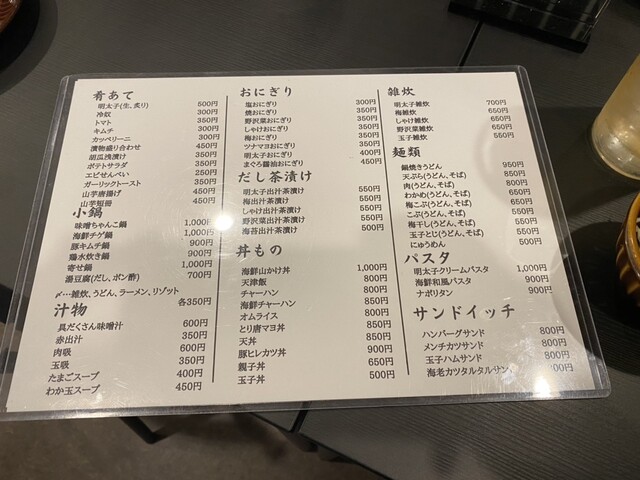 肴あて
明太子(生、炙り) 500円
冷奴 300円
トマト 350円
キムチ 300円
カッペリーニ 300円
漬物盛り合わせ 450円
胡瓜浅漬け 350円
ポテトサラダ 350円
エビせんべい 250円
ガーリックトースト 350円
山芋唐揚げ 450円
山芋短冊 450円
小鍋
味噌ちゃんこ鍋 1,000円
海鮮チゲ鍋 1,000円
豚キムチ鍋 900円
鶏水炊き鍋 900円
寄せ鍋 1,000円
湯豆腐(だし、ポン酢) 700円
〆…雑炊、うどん、ラーメン、リゾット 各350円
汁物
具だくさん味噌汁 600円
赤出汁 350円
肉吸 600円
玉吸 350円
たまごスープ 400円
わか玉スープ 450円
おにぎり
塩おにぎり 300円
焼おにぎり 350円
野沢菜おにぎり 350円
しゃけおにぎり 350円
梅おにぎり 350円
ツナマヨおにぎり 350円
明太子おにぎり 400円
まぐろ醤油おにぎり 450円
だし茶漬け
明太子出汁茶漬け 550円
梅出汁茶漬け 550円
しゃけ出汁茶漬け 550円
野沢菜出汁茶漬け 550円
海苔出汁茶漬け 500円
丼もの
海鮮山かけ丼 1,000円
天津飯 800円
チャーハン 800円
海鮮チャーハン 850円
オムライス 850円
とり唐マヨ丼 850円
天丼 850円
豚ヒレカツ丼 900円
親子丼 650円
玉子丼 500円
雑炊
明太子雑炊 700円
梅雑炊 650円
しゃけ雑炊 650円
野沢菜雑炊 650円
玉子雑炊 550円
麺類
鍋焼きうどん 950円
天ぷら(うどん、そば) 850円
肉(うどん、そば) 800円
わかめ(うどん、そば) 650円
梅こぶ(うどん、そば) 650円
こぶ(うどん、そば) 550円
梅干し(うどん、そば) 550円
玉子とじ(うどん、そば) 550円
にゅうめん 500円
パスタ
明太子クリームパスタ 1,000円
海鮮和風パスタ 900円
ナポリタン 900円
サンドイッチ
ハンバーグサンド 800円
メンチカツサンド 800円
玉子ハムサンド 800円
海老カツタルタルサンド